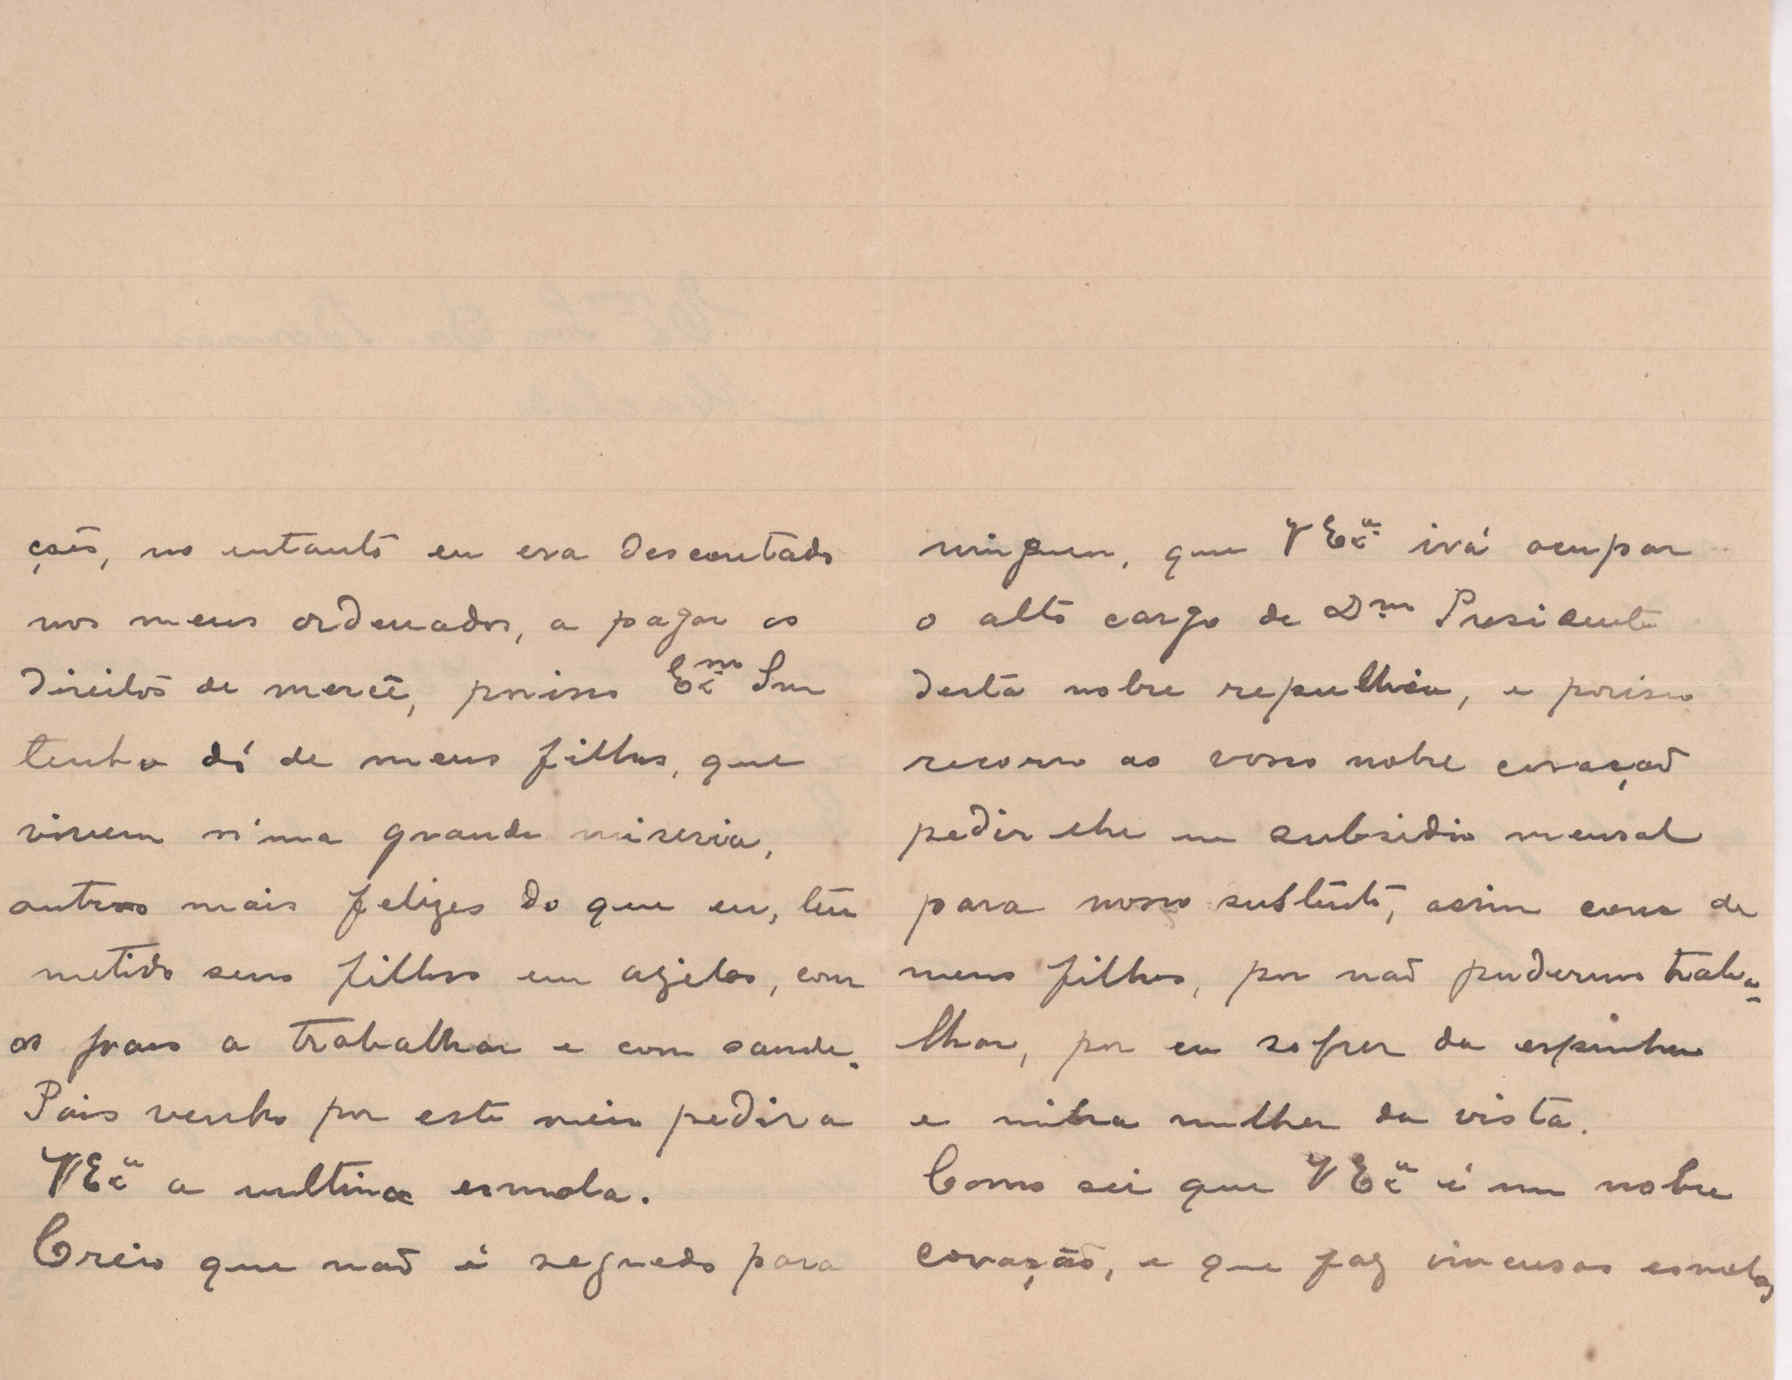 ções, no entanto eu era descontado
nos meus ordenados, a pagar os
direitos de mercê, porisso Ex.mo Snr
tenha dó de meus filhos, que
vivem n'uma grande miseria,
outros mais felizes do que eu, têm
metido seus filhos em azilos, com
os paes a trabalhar e com saude.
Pois venho por este meio pedir a
V Ex.a a ultima esmola.
Creio que naõ é segredo para
ninguem, que V Ex.a irá ocupar
o alto cargo de D.mo Presidente
desta nobre repulhica, e porisso
recorro ao vosso nobre coraçaõ
pedir lhe um subsidio mensal
para nosso sustento, asim como de
meus filhos, por naõ pudermos traba-
lhar, por eu sofrer da espinha
e minha mulher da vista.
Como sei que V Ex.a é um nobre
coração, e que faz imensas esmolas